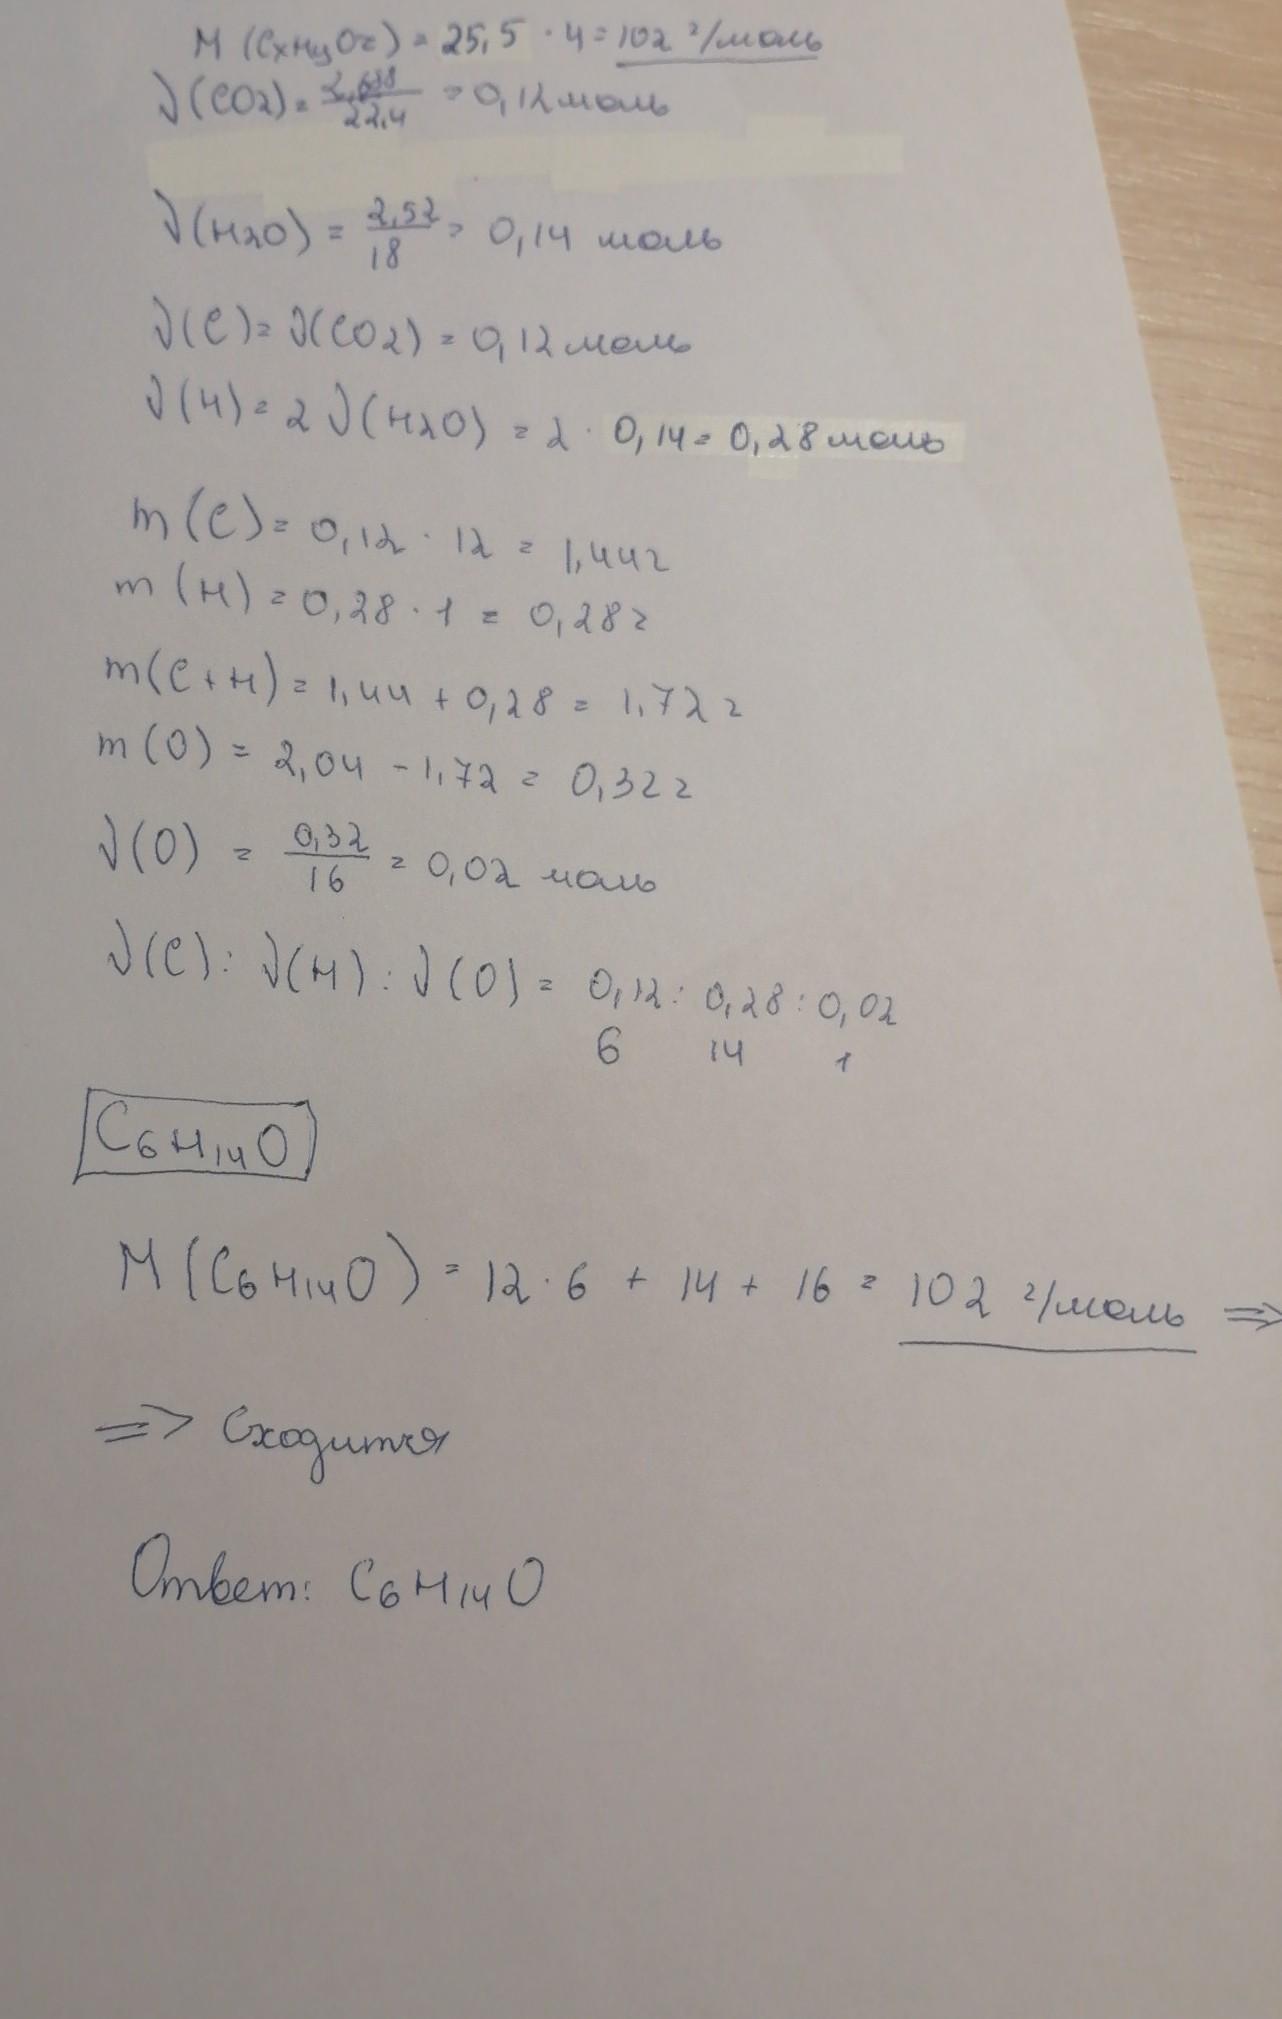 M (CxHyOz) = 25,5 · 4 = 102 г/моль
ν(CO2) = 2,688/22,4 = 0,12 моль
ν(H2O) = 2,52/18 = 0,14 моль
ν(C) = ν(CO2) = 0,12 моль
ν(H) = 2 ν(H2O) = 2 · 0,14 = 0,28 моль
m(C) = 0,12 · 12 = 1,44 г
m(H) = 0,28 · 1 = 0,28 г
m(C+H) = 1,44 + 0,28 = 1,72 г
m(O) = 2,04 - 1,72 = 0,32 г
ν(O) = 0,32/16 = 0,02 моль
ν(C) : ν(H) : ν(O) = 0,12 : 0,28 : 0,02
6 14 1
C6H14O
M(C6H14O) = 12 · 6 + 14 + 16 = 102 г/моль =>
=> Сходится
Ответ: C6H14O